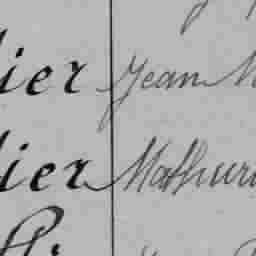 ier Jean M
ier Mathuri